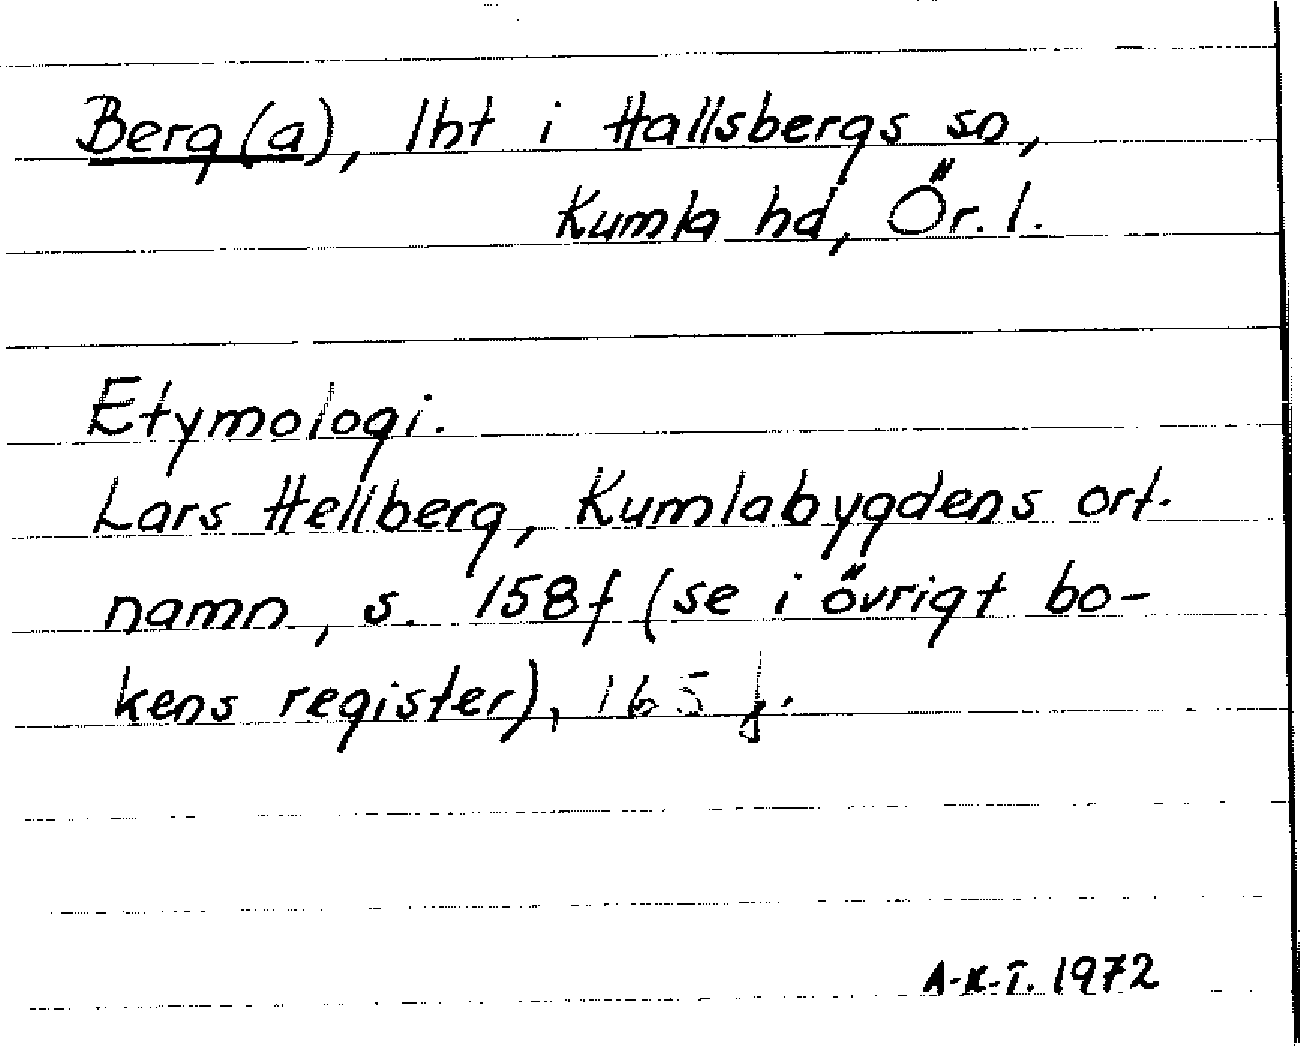 Berg(a), lht i Hallsbergs sn,
Kumla hd, Ör. l.
Etymologi.
Lars Hellberg, Kumlabygdens ort-
namn, s. 158f (se i övrigt bo-
kens register), 165 f.
A-K.T. 1972